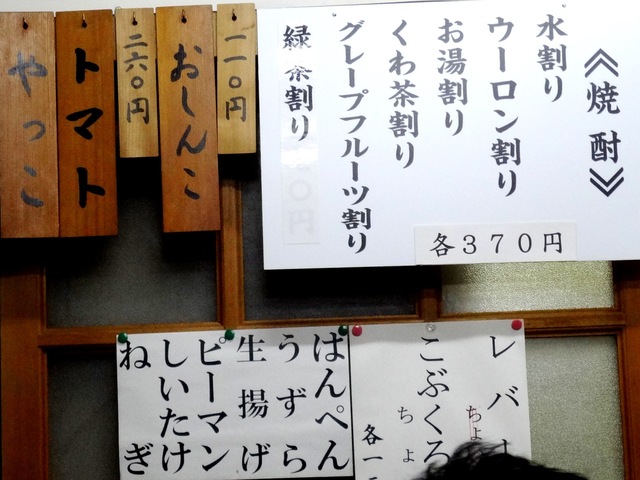 ≪焼酎≫
水割り
ウーロン割り
お湯割り
くわ茶割り
グレープフルーツ割り
緑茶割り
各３７０円
一一〇円
おしんこ
二六〇円
トマト
やっこ
レバー
ちょ
こぶくろ
ちょ
各一
はんぺん
うずら
生揚げ
ピーマン
しいたけ
ねぎ